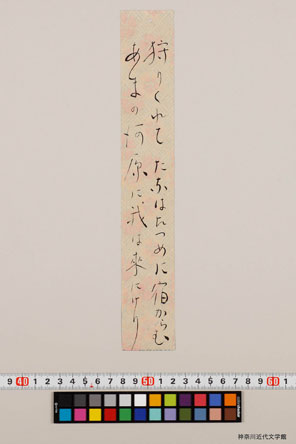 狩りくれてたなはたつめに宿からむ
あまの河原に我は來にけり
9 40 1 2 3 4 5 6 7 8 9 50 1 2 3 4 5 6 7 8 9 60 1
神奈川近代文学館